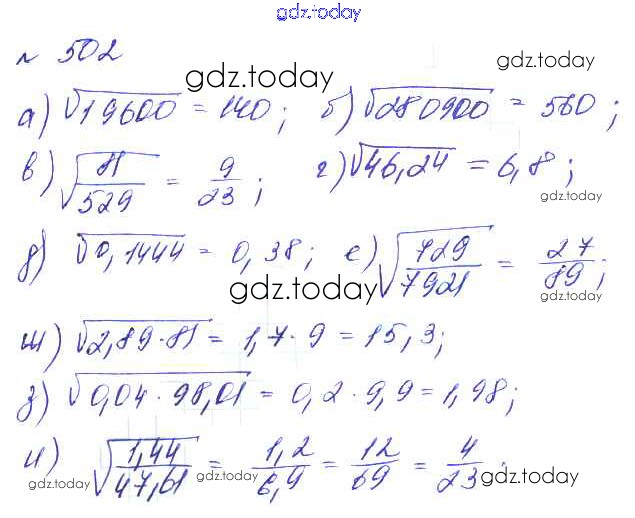 gdz.today
№ 502
gdz.today
а) √19600 = 140; б) √280900 = 530;
в) √(81/529) = 9/23; г) √46,24 = 6,8;
gdz.today gdz.today
д) √0,1444 = 0,38; е) √(729/7921) = 27/89;
gdz.today gdz.today
ж) √2,89·81 = 1,7·9 = 15,3;
з) √0,04·98,01 = 0,2·9,9 = 1,98;
и) √(1,44/47,61) = 1,2/6,9 = 12/69 = 4/23;
gdz.today gdz.today gdz.today